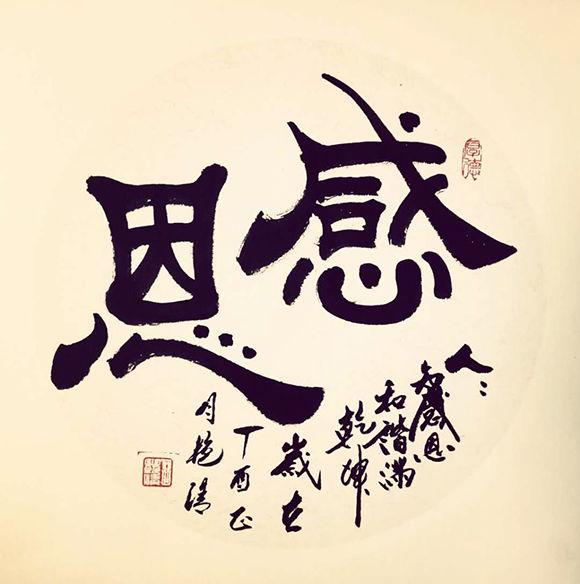 感恩
人人
知感恩
和谐满
乾坤
岁在
丁酉正
月艳清
厚德